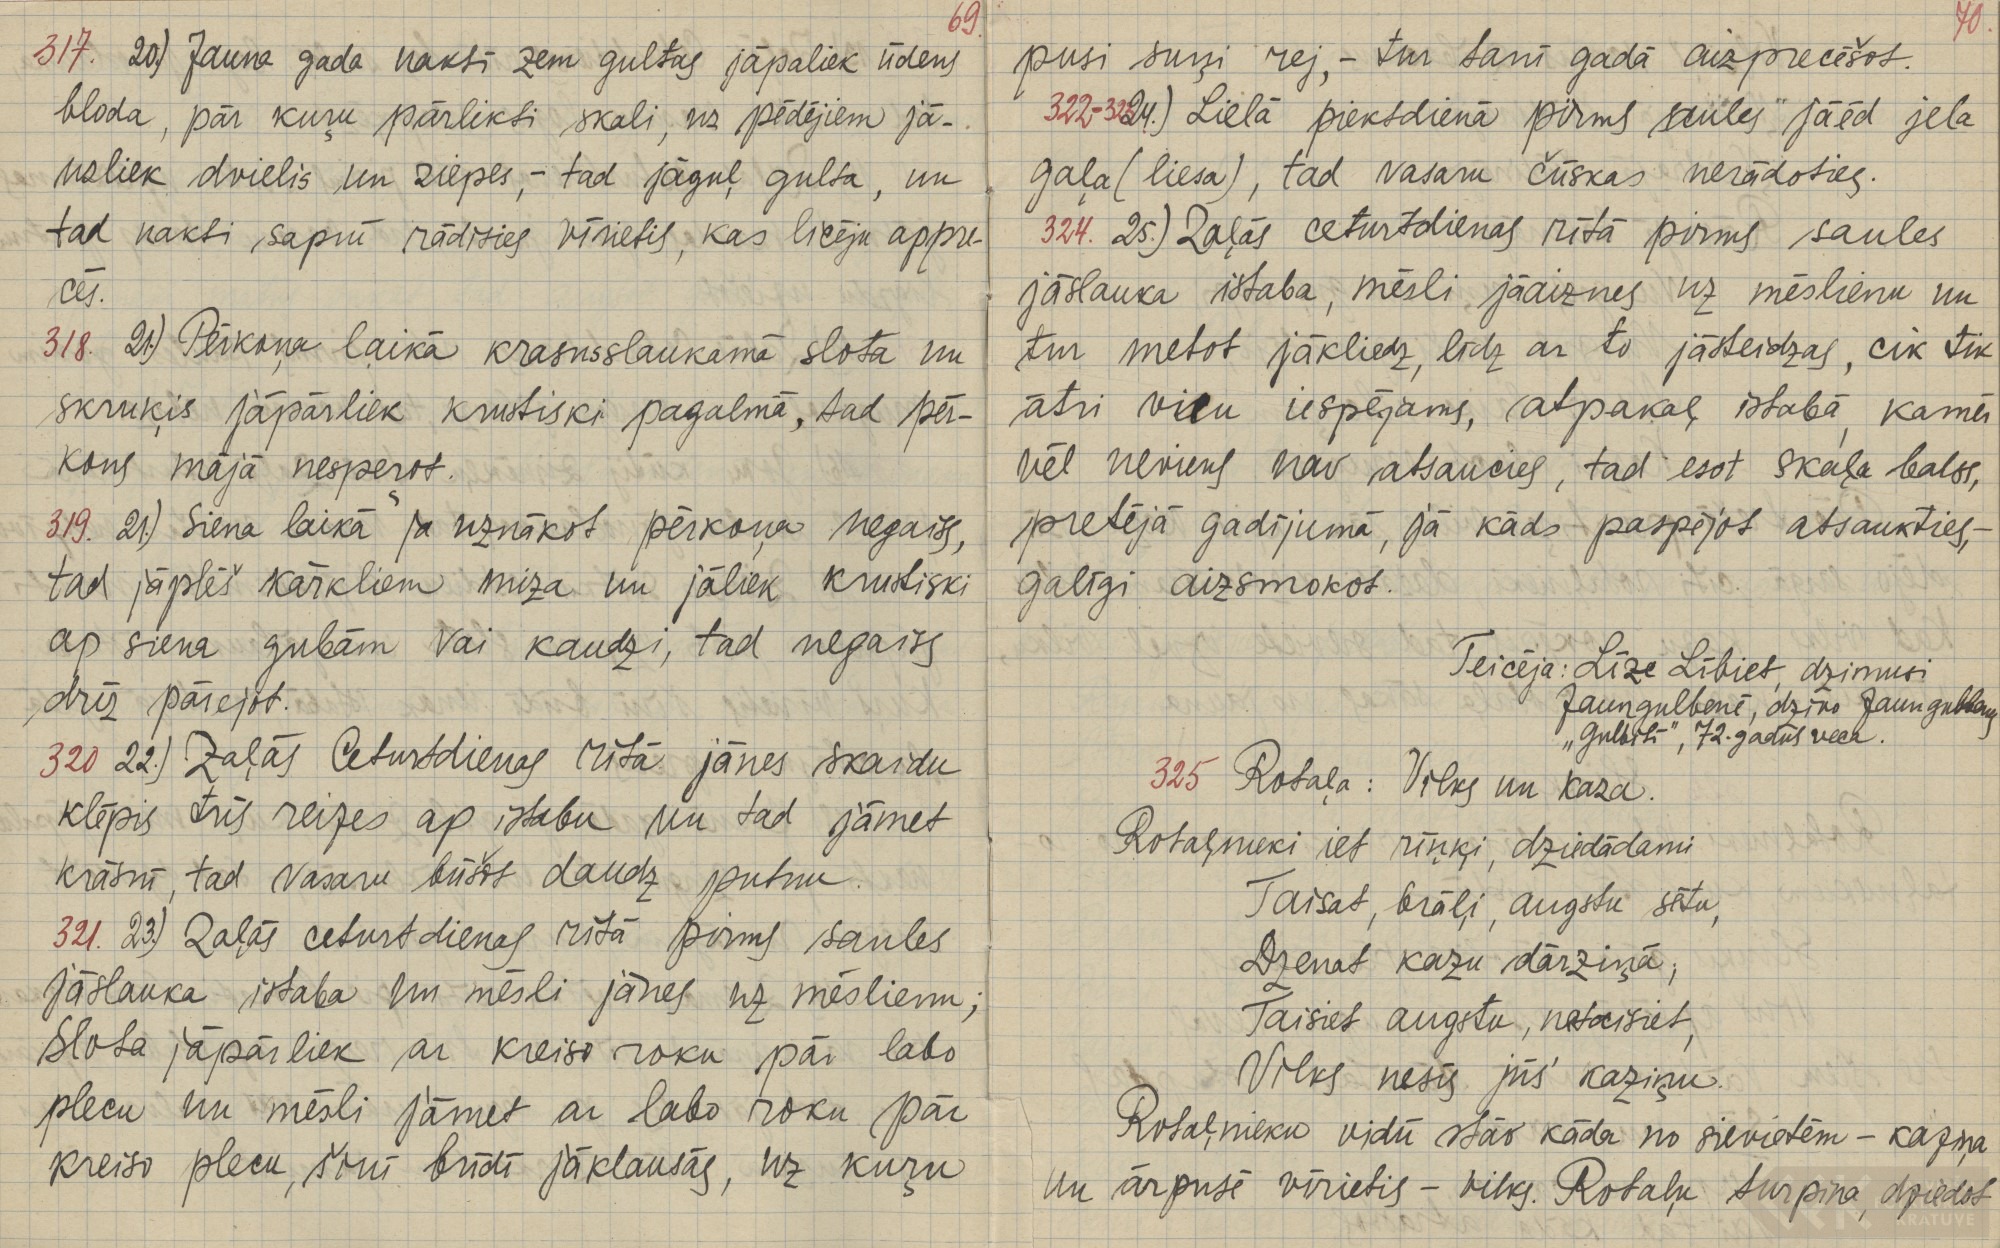 69.
317. 20.) Jauna gada naktī zem gultas jāpaliek ūdens
bļoda, pār kuŗu pārlikti skali, uz pēdējiem jā-
uzliek dvielis un ziepes,- tad jāguļ gultā, un
tad naktī sapnī rādīsies vīrietis, kas licēju appre-
cēs.
318. 21.) Pērkoņa laikā krāsnsslaukāmā slota un
skruķis jāpārliek krustiski pagalmā, tad pēr-
kons mājā nesperot.
319. 21.) Siena laikā ja uznākot pērkoņa negaiss,
tad jāplēš kārkliem miza un jāliek krustiski
ap siena gubām vai kaudzi, tad negaiss
drīz pārejot.
320 22.) Zaļās Ceturtdienas rītā jānes skaidu
klēpis trīs reizes ap istabu un tad jāmet
krāsnī, tad vasaru būšot daudz putnu.
321. 23.) Zaļās ceturtdienas rītā pirms saules
jāslauka istaba un mēsli jānes uz mēslienu;
slota jāpārliek ar kreiso roku pār labo
plecu un mēsli jāmet ar labo roku pār
kreiso plecu, šinī brīdī jāklausās, uz kuŗu
70.
pusi suņi rej,- tur tanī gadā aizprecēšot.
322-323 24.) Lielā piektdienā pirms saules jāēd jela
gaļa (liesa), tad vasaru čūskas nerādoties.
324. 25.) Zaļās ceturtdienas rītā pirms saules
jāslauka istaba, mēsli jāaiznes uz mēslienu un
tur metot jākliedz, līdz ar to jāsteidzas, cik tik
ātri vien iespējams, atpakaļ istabā, kamēr
vēl neviens nav atsaucies, tad esot skaļa balss,
pretējā gadījumā, jā kāds paspējot atsaukties,-
galīgi aizsmokot.
Teicēja: Līze Lībiet, dzimusi
Jaungulbenē, dzīvo Jaungulbenes
„Gulbīšī", 72. gadus veca.
325 Rotaļa: Vilks un kaza.
Rotaļnieki iet riņķi, dziedādami
Taisat, brāļi, augstu sētu,
Dzenat kazu dārziņā;
Taisiet augstu, netaisiet,
Vilks nesīs jūs' kaziņu.
Rotaļnieku vidū stāv kāda no sievietēm - kaziņa
un ārpusē vīrietis - vilks. Rotaļu turpina, dziedot
KRĀTUVE